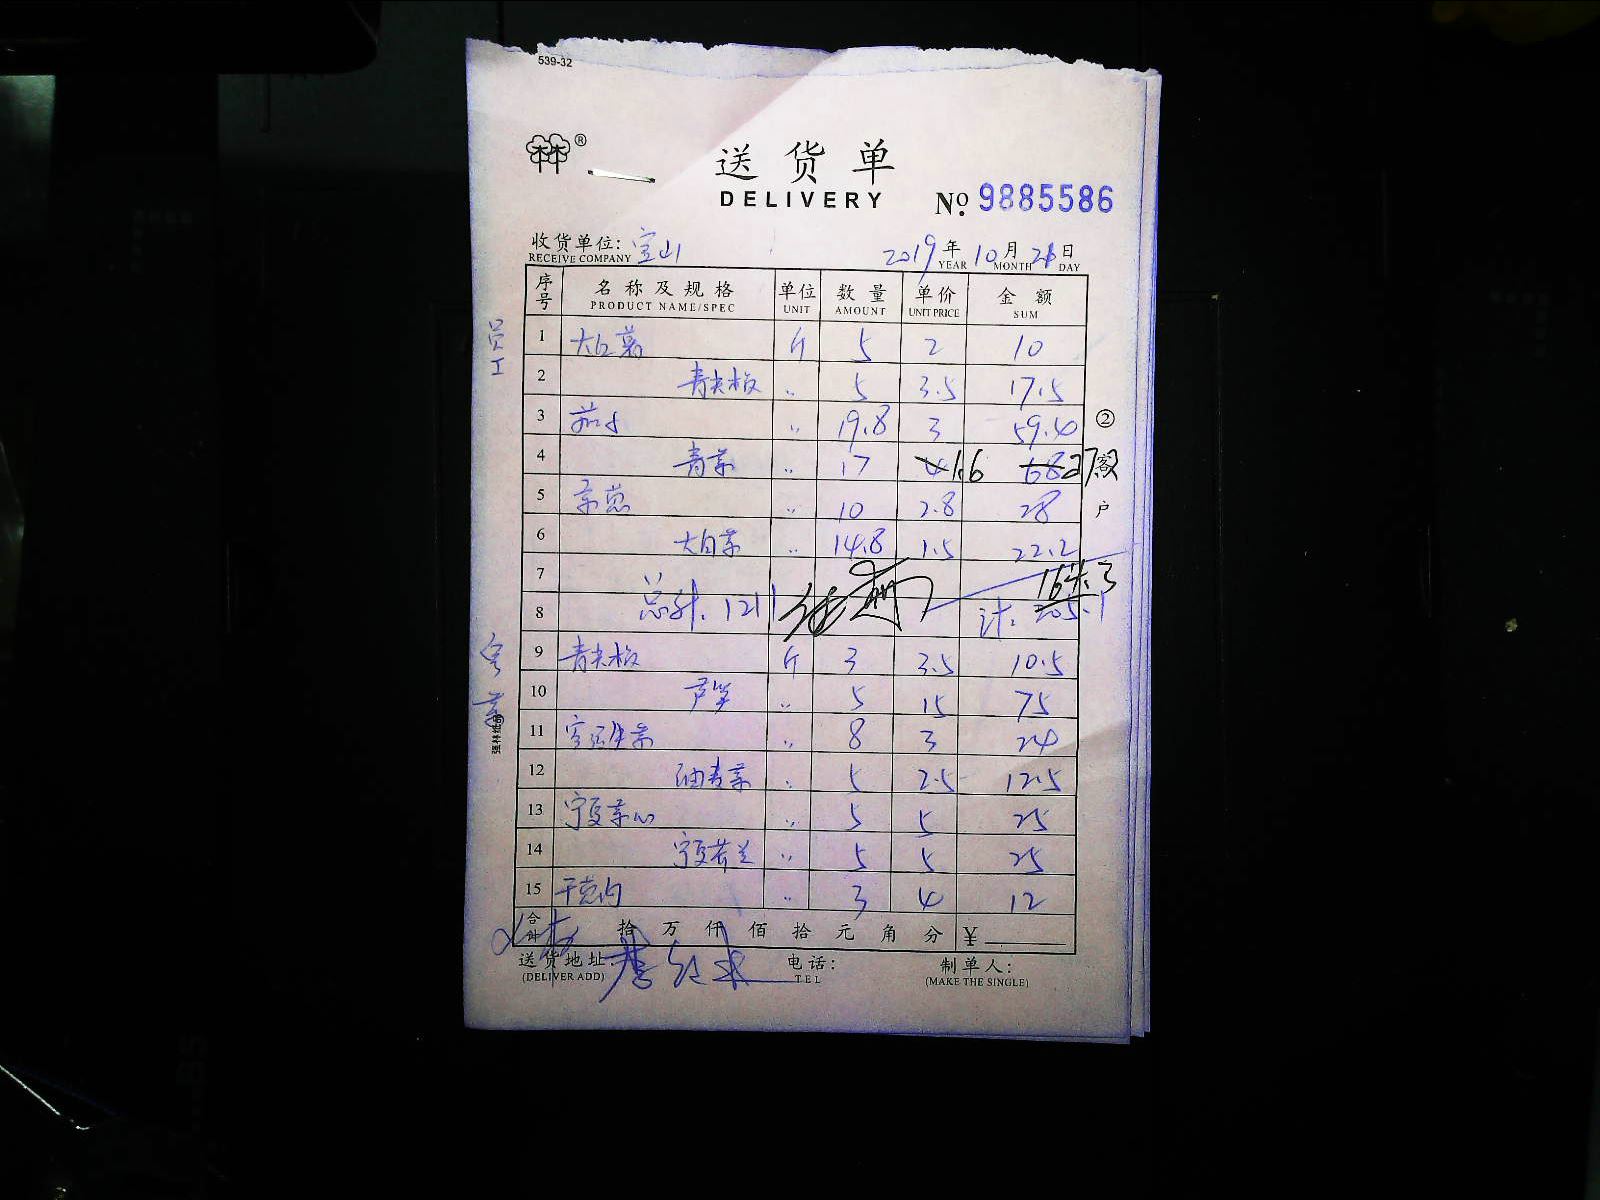 539-32
®
送货单
DELIVERY
No. 9885586
收货单位: 宝山
RECEIVE COMPANY
2019年10月21日
YEAR MONTH DAY
序号 名称及规格 单位 数量 单价 金额
PRODUCT NAME/SPEC UNIT AMOUNT UNIT PRICE SUM
员工
1 斤 5 2 10
2 青尖椒 〃 5 3.5 17.5
3 茄子 〃 19.8 3 59.40
4 青菜 〃 17 4 1.6 68 27
5 〃 10 2.8 28
6 大白菜 〃 14.8 1.5 22.2
7 164.3
8 总计. 1211 计: 205.1
②客户
客菜
9 青尖椒 斤 3 3.5 10.5
10 芦笋 〃 5 15 75
11 〃 8 3 24
12 油青菜 〃 5 2.5 12.5
13 宁夏菜心 〃 5 5 25
14 宁夏芥兰 〃 5 5 25
15 〃 3 4 12
强林纸品
合计 拾 万 仟 佰 拾 元 角 分 ¥
送货地址: 电话: 制单人:
(DELIVER ADD) TEL (MAKE THE SINGLE)